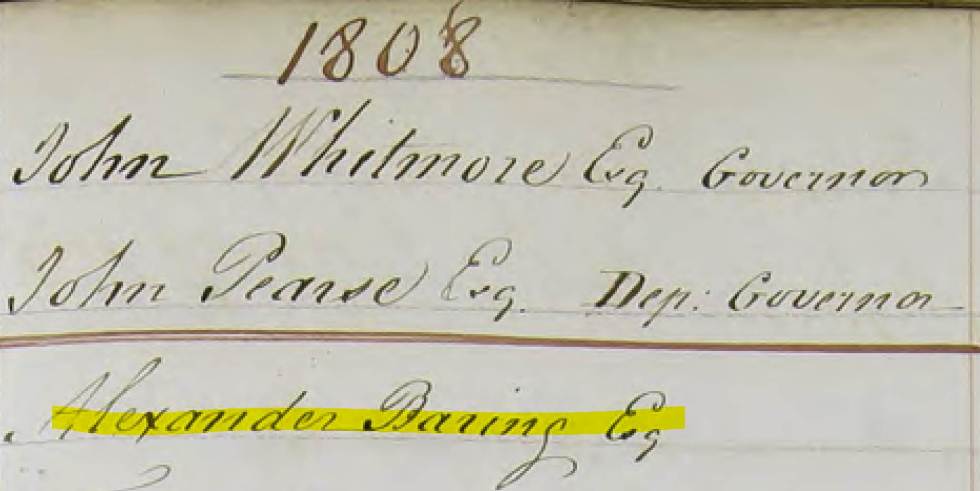 1808
John Whitmore Esq. Governor
John Pearse Esq. Dep: Governor
Alexander Baring Esq